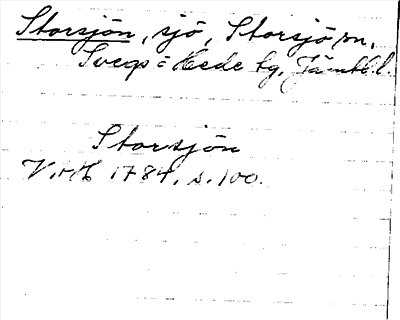 Storsjön, sjö, Storsjö sn,
Svegs = Hede tg, Jämtl. l.
Storsjön
1784, s. 100.